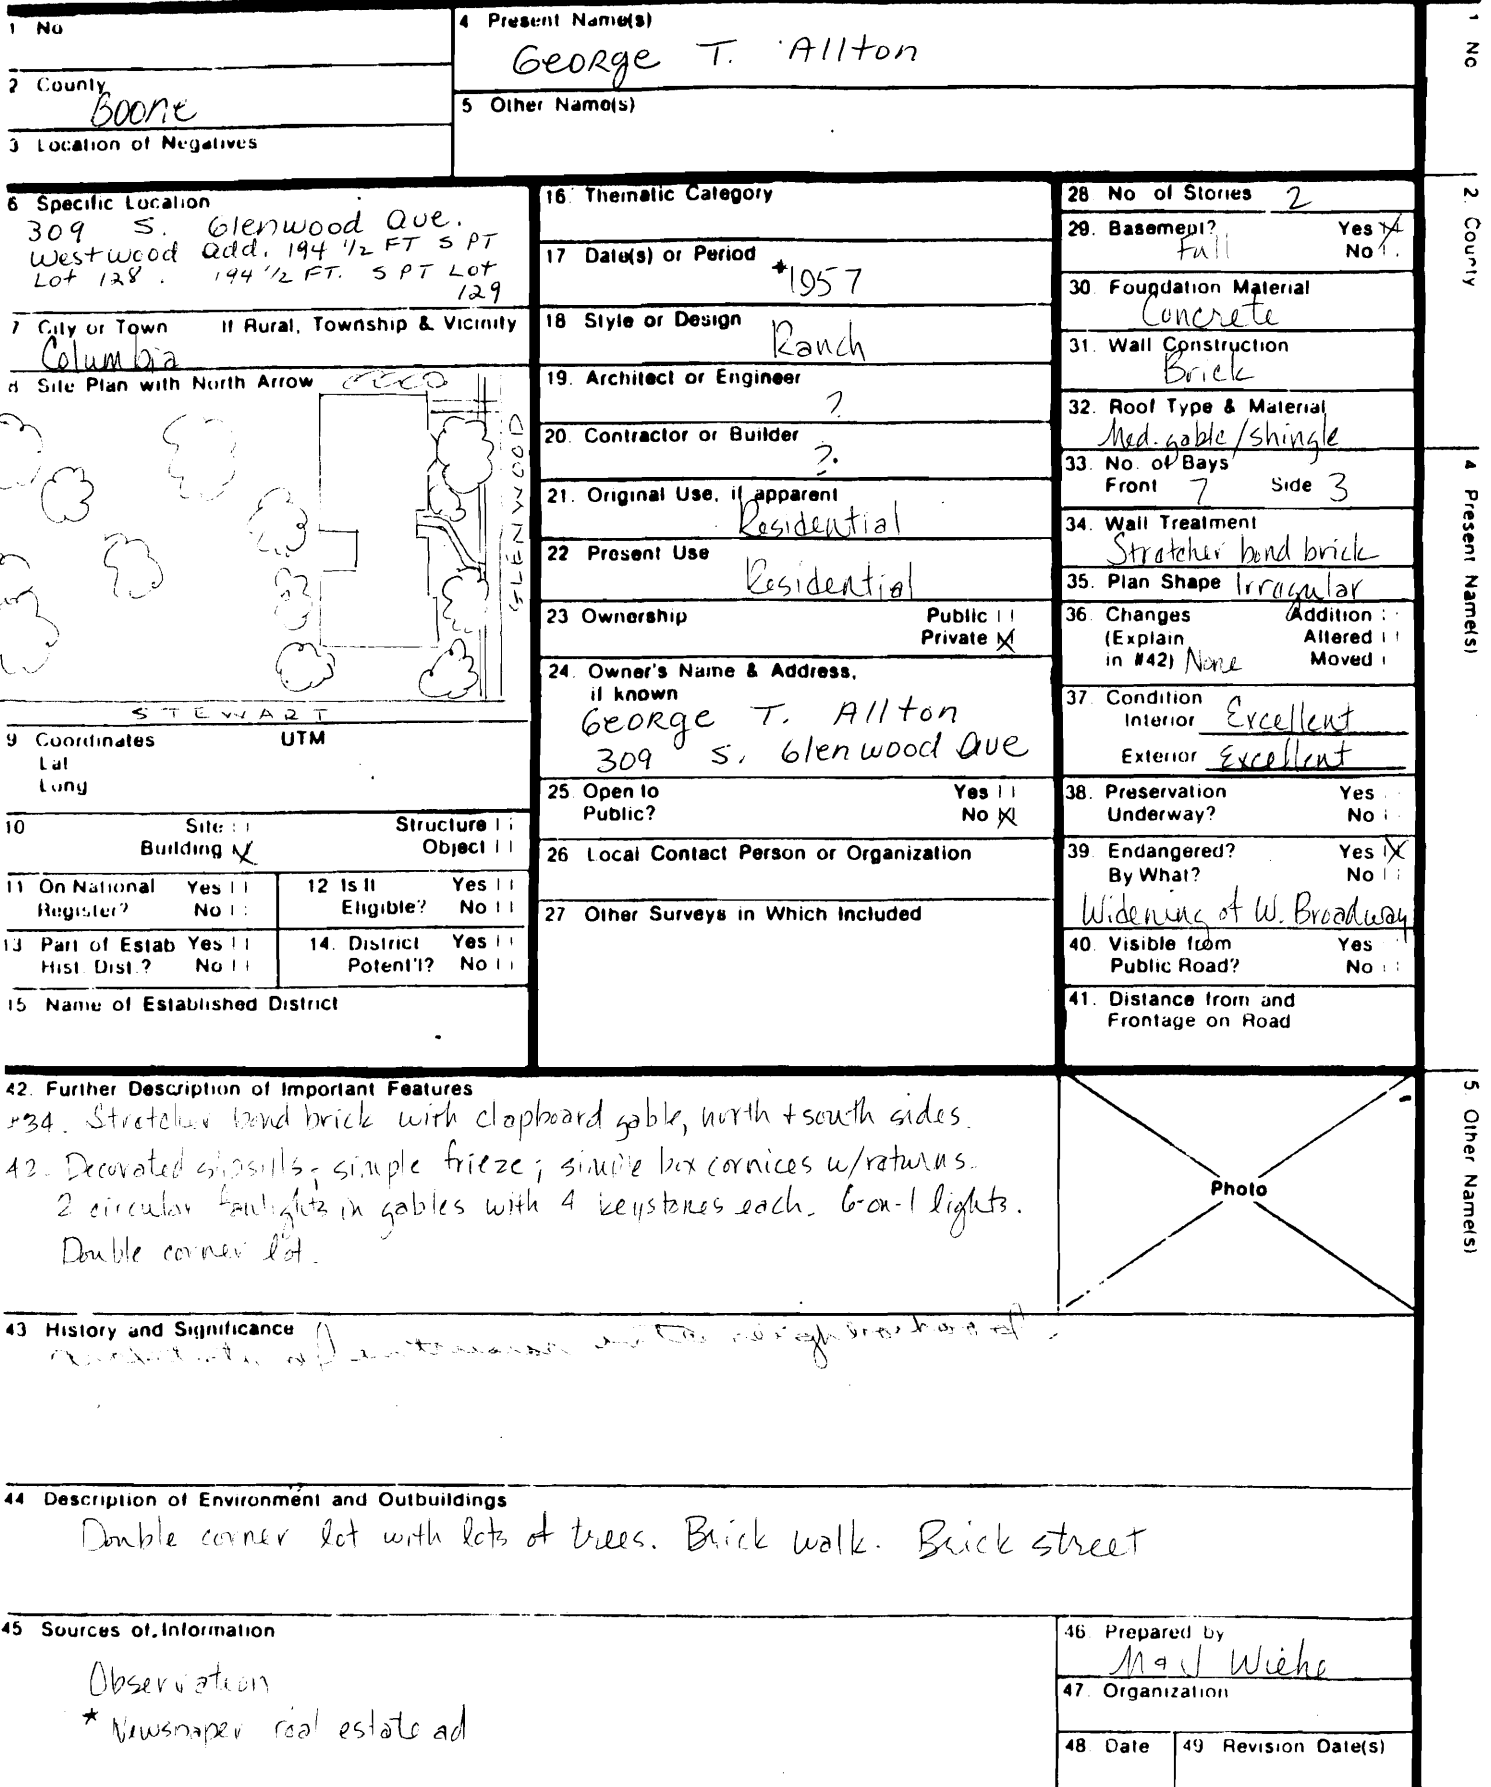 1 No
4 Present Name(s)
George T. Allton
2 County
Boone
5 Other Name(s)
3 Location of Negatives
6 Specific Location
309 S. Glenwood Ave.
Westwood Add. 194 1/2 FT S PT
Lot 128. 194 1/2 FT. S PT Lot
129
7 City or Town If Rural, Township & Vicinity
Columbia
8 Site Plan with North Arrow
GLENWOOD
STEWART
9 Coordinates UTM
Lat
Long
10 Site Structure
Building X Object
11 On National Register? Yes No
12 Is It Eligible? Yes No
13 Part of Estab Hist. Dist.? Yes No
14. District Potent'l? Yes No
15 Name of Established District
16. Thematic Category
17 Date(s) or Period
*1957
18 Style or Design
Ranch
19. Architect or Engineer
?
20. Contractor or Builder
?.
21. Original Use, if apparent
Residential
22 Present Use
Residential
23 Ownership Public
Private X
24. Owner's Name & Address,
if known
George T. Allton
309 S. Glenwood Ave
25. Open to Yes
Public? No X
26 Local Contact Person or Organization
27 Other Surveys in Which Included
28 No of Stories 2
29. Basement? Yes X
Full No
30. Foundation Material
Concrete
31. Wall Construction
Brick
32. Roof Type & Material
Med. gable/shingle
33. No. of Bays
Front 7 Side 3
34. Wall Treatment
Stretcher bond brick
35. Plan Shape Irregular
36. Changes Addition
(Explain Altered
in #42) None Moved
37. Condition
Interior Excellent
Exterior Excellent
38. Preservation Yes
Underway? No
39. Endangered? Yes X
By What? No
Widening of W. Broadway
40. Visible from Yes
Public Road? No
41. Distance from and
Frontage on Road
42. Further Description of Important Features
#34. Stretcher bond brick with clapboard gable, north + south sides.
42. Decorated slipsills; simple frieze; simple box cornices w/returns.
2 circular fanlights in gables with 4 keystones each. 6-on-1 lights.
Double corner lot.
Photo
43 History and Significance
44 Description of Environment and Outbuildings
Double corner lot with lots of trees. Brick walk. Brick street
45 Sources of Information
Observation
* Newspaper real estate ad
46. Prepared by
Wiehe
47. Organization
48 Date
49 Revision Date(s)
1 No
2. County
4 Present Name(s)
5. Other Name(s)